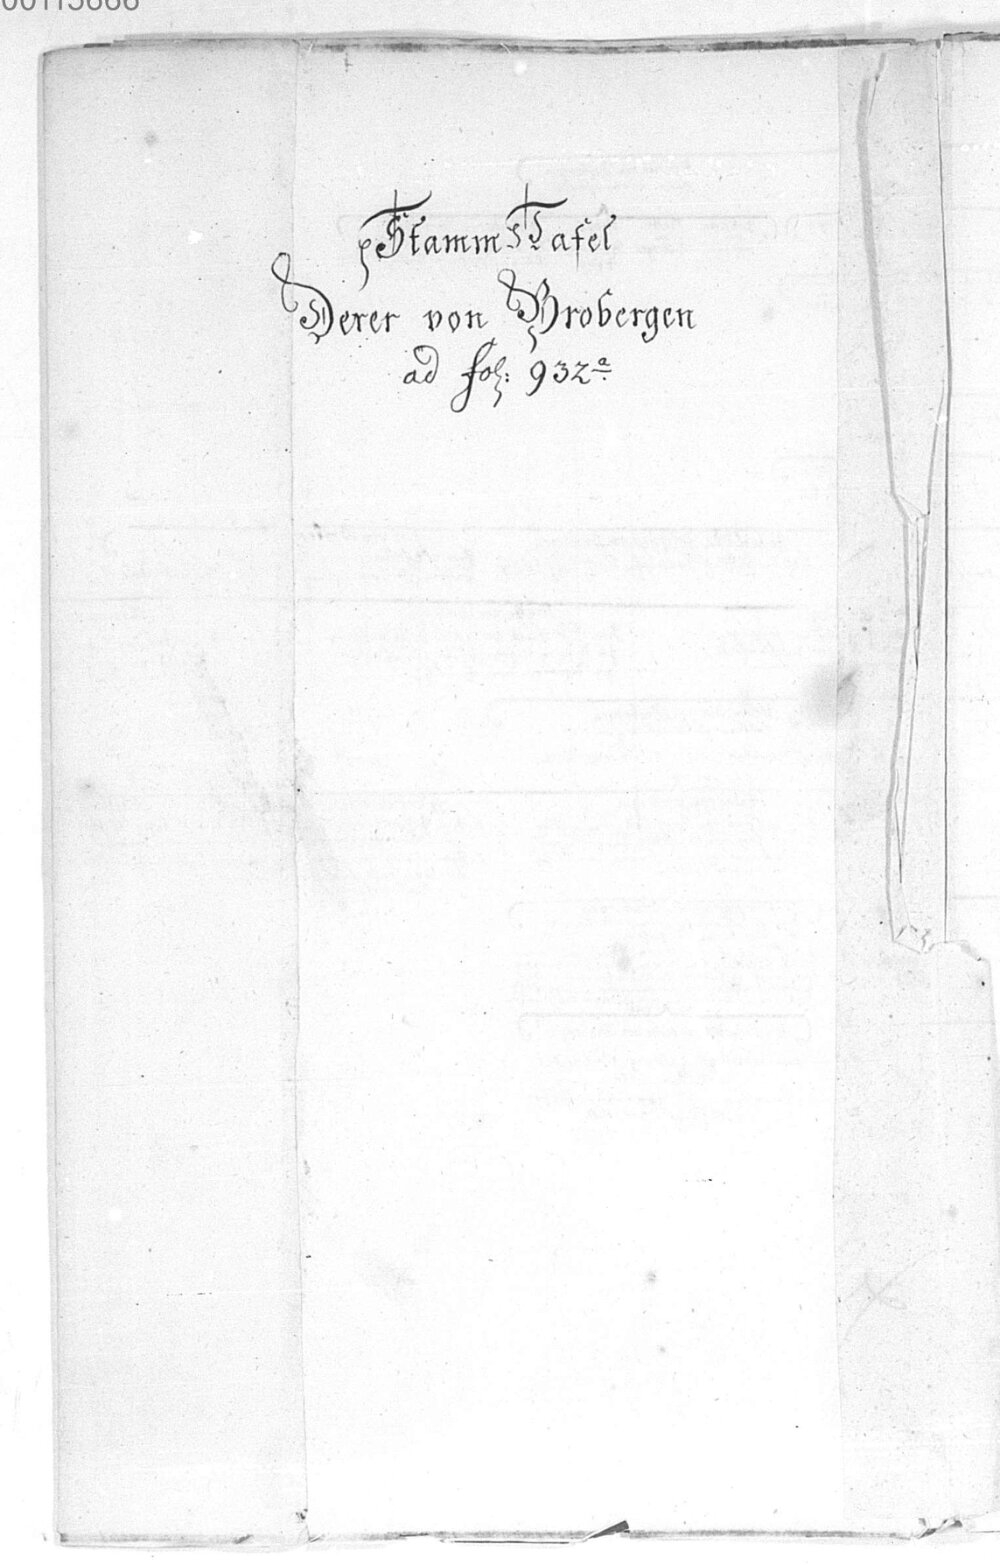 Stamm Tafel
Derer von Brobergen
ad fol: 932a